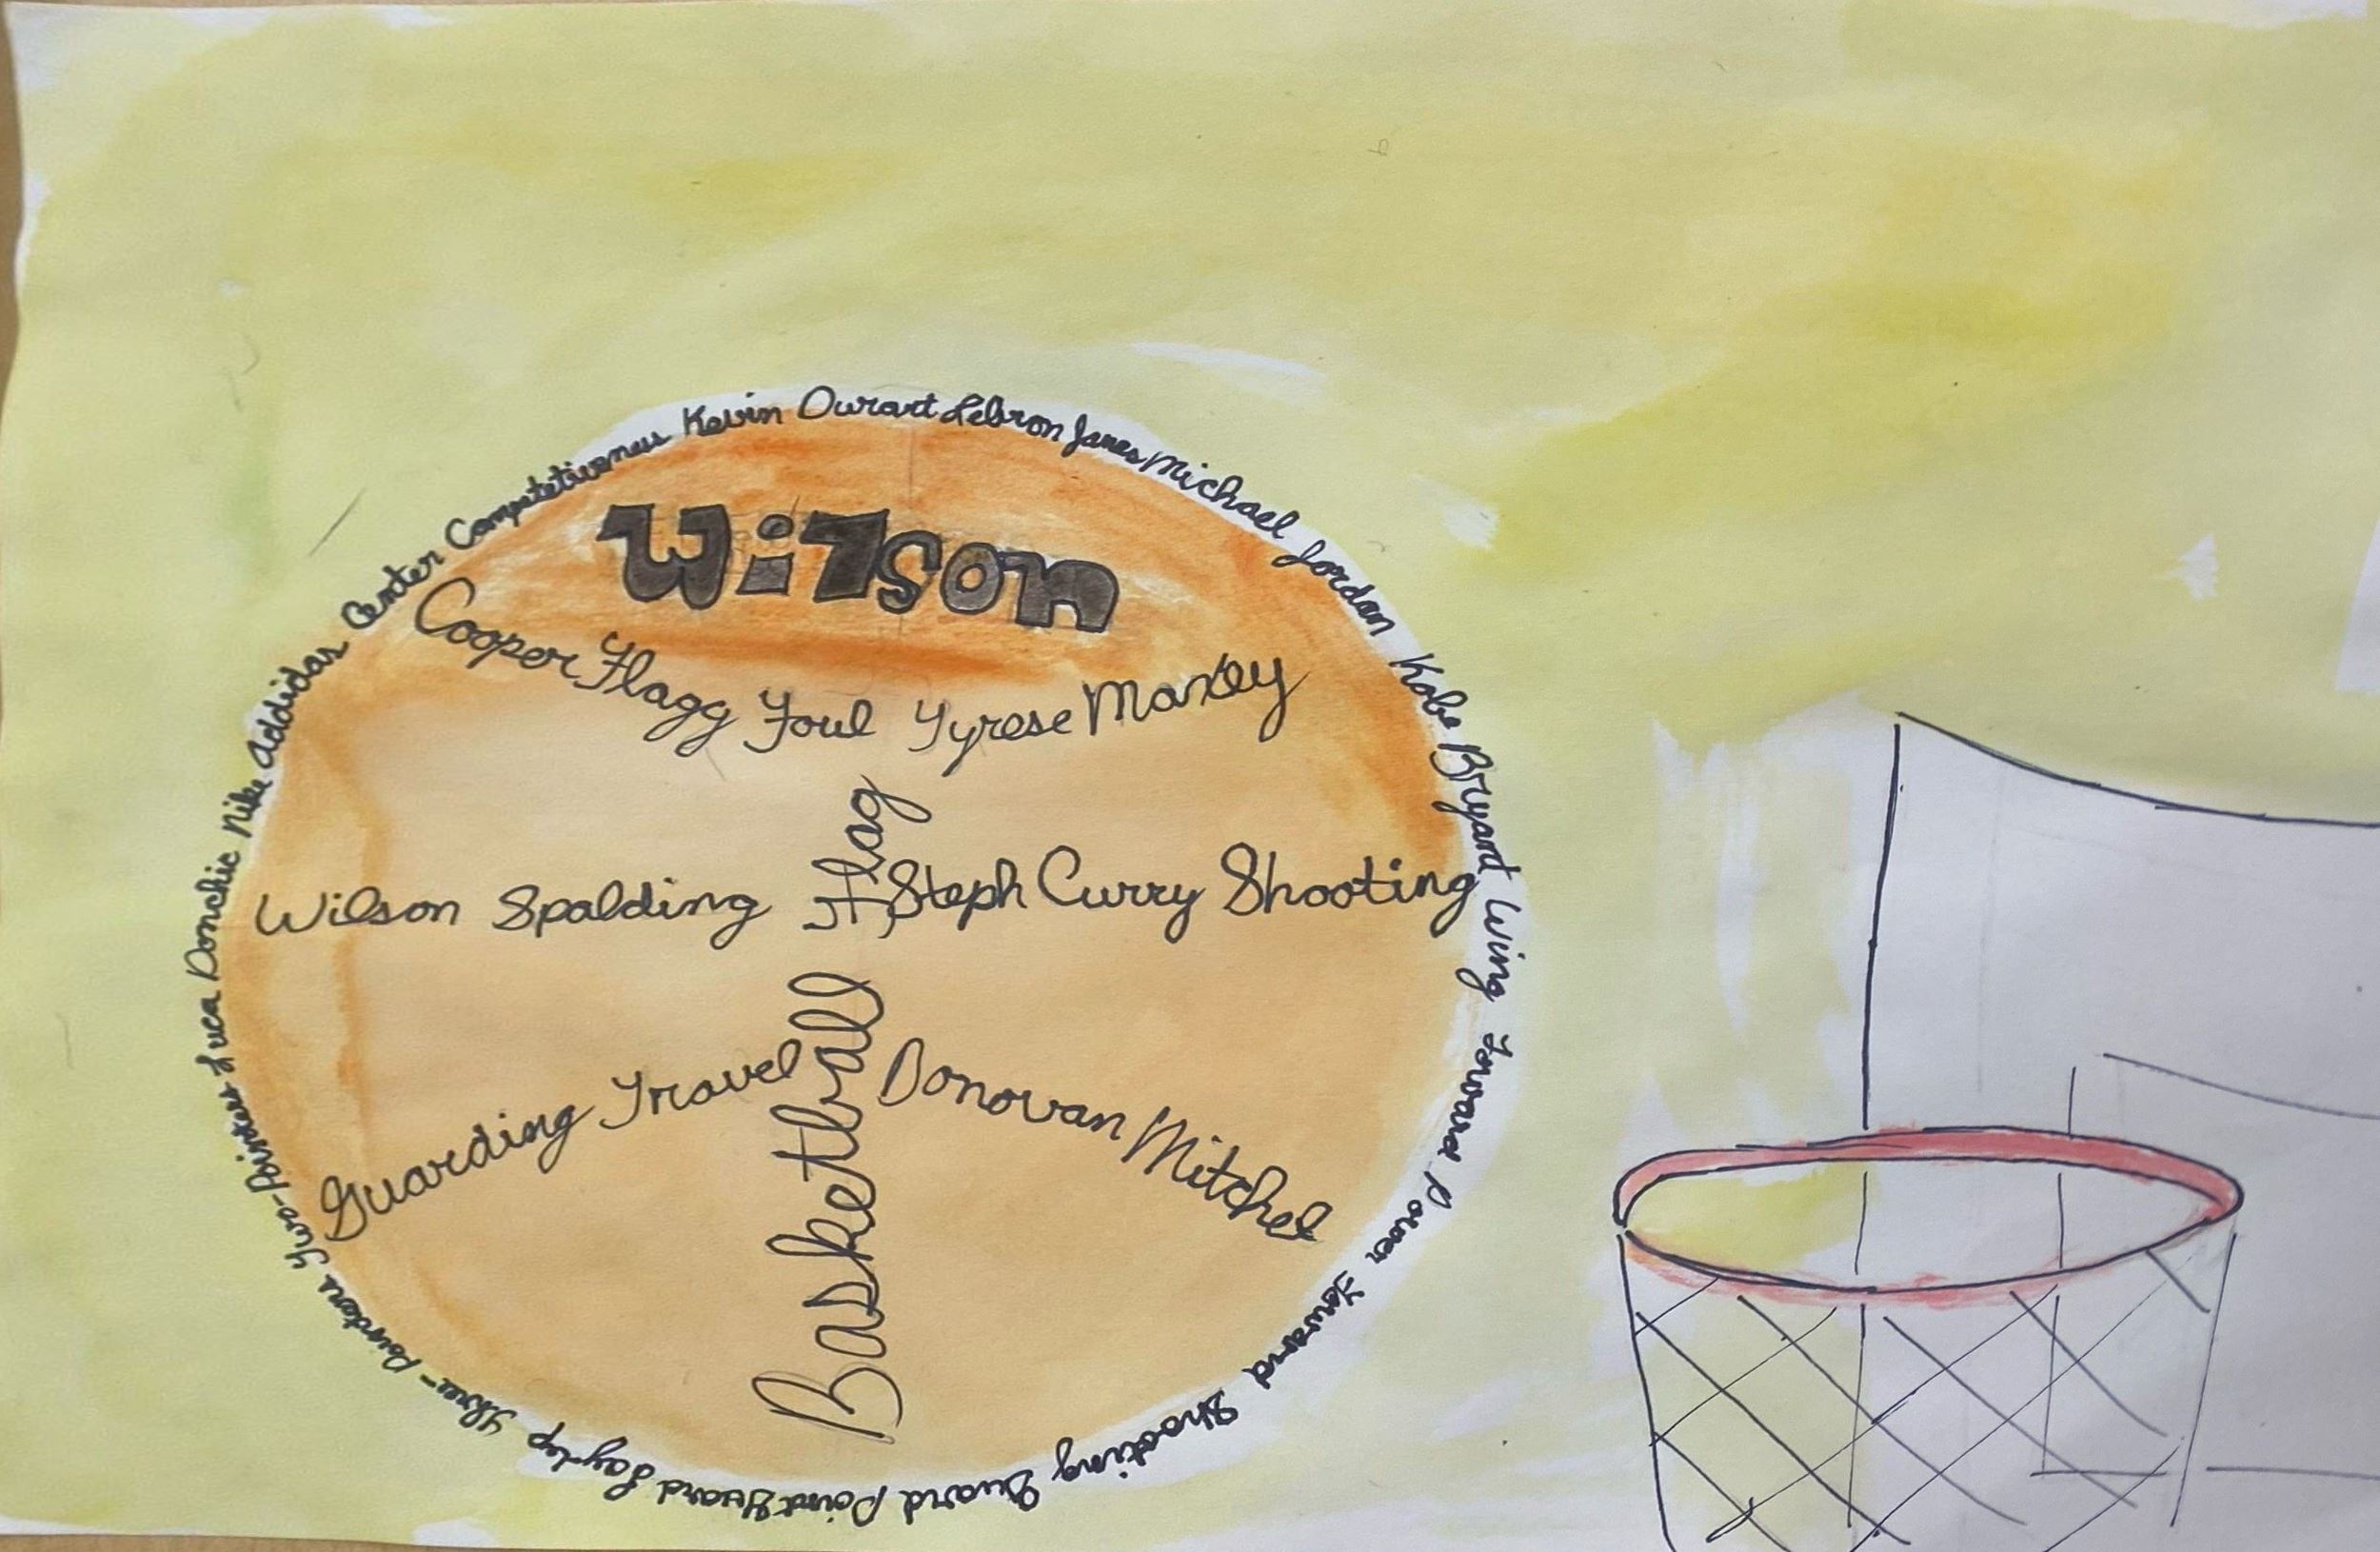 Wilson
Kevin Durart Lebron James Michael Jordan Kobe Bryant Wing Forward Power Forward Shooting Guard Point Guard Lay-up Three-Pointers Two-Pointers Luca Donchic Nike Addidas Center Competetiveness
Cooper Flagg Foul Tyrese Maxey
Flag
Wilson Spalding Steph Curry Shooting
Guarding Travel Donovan Mitchel
Basketball